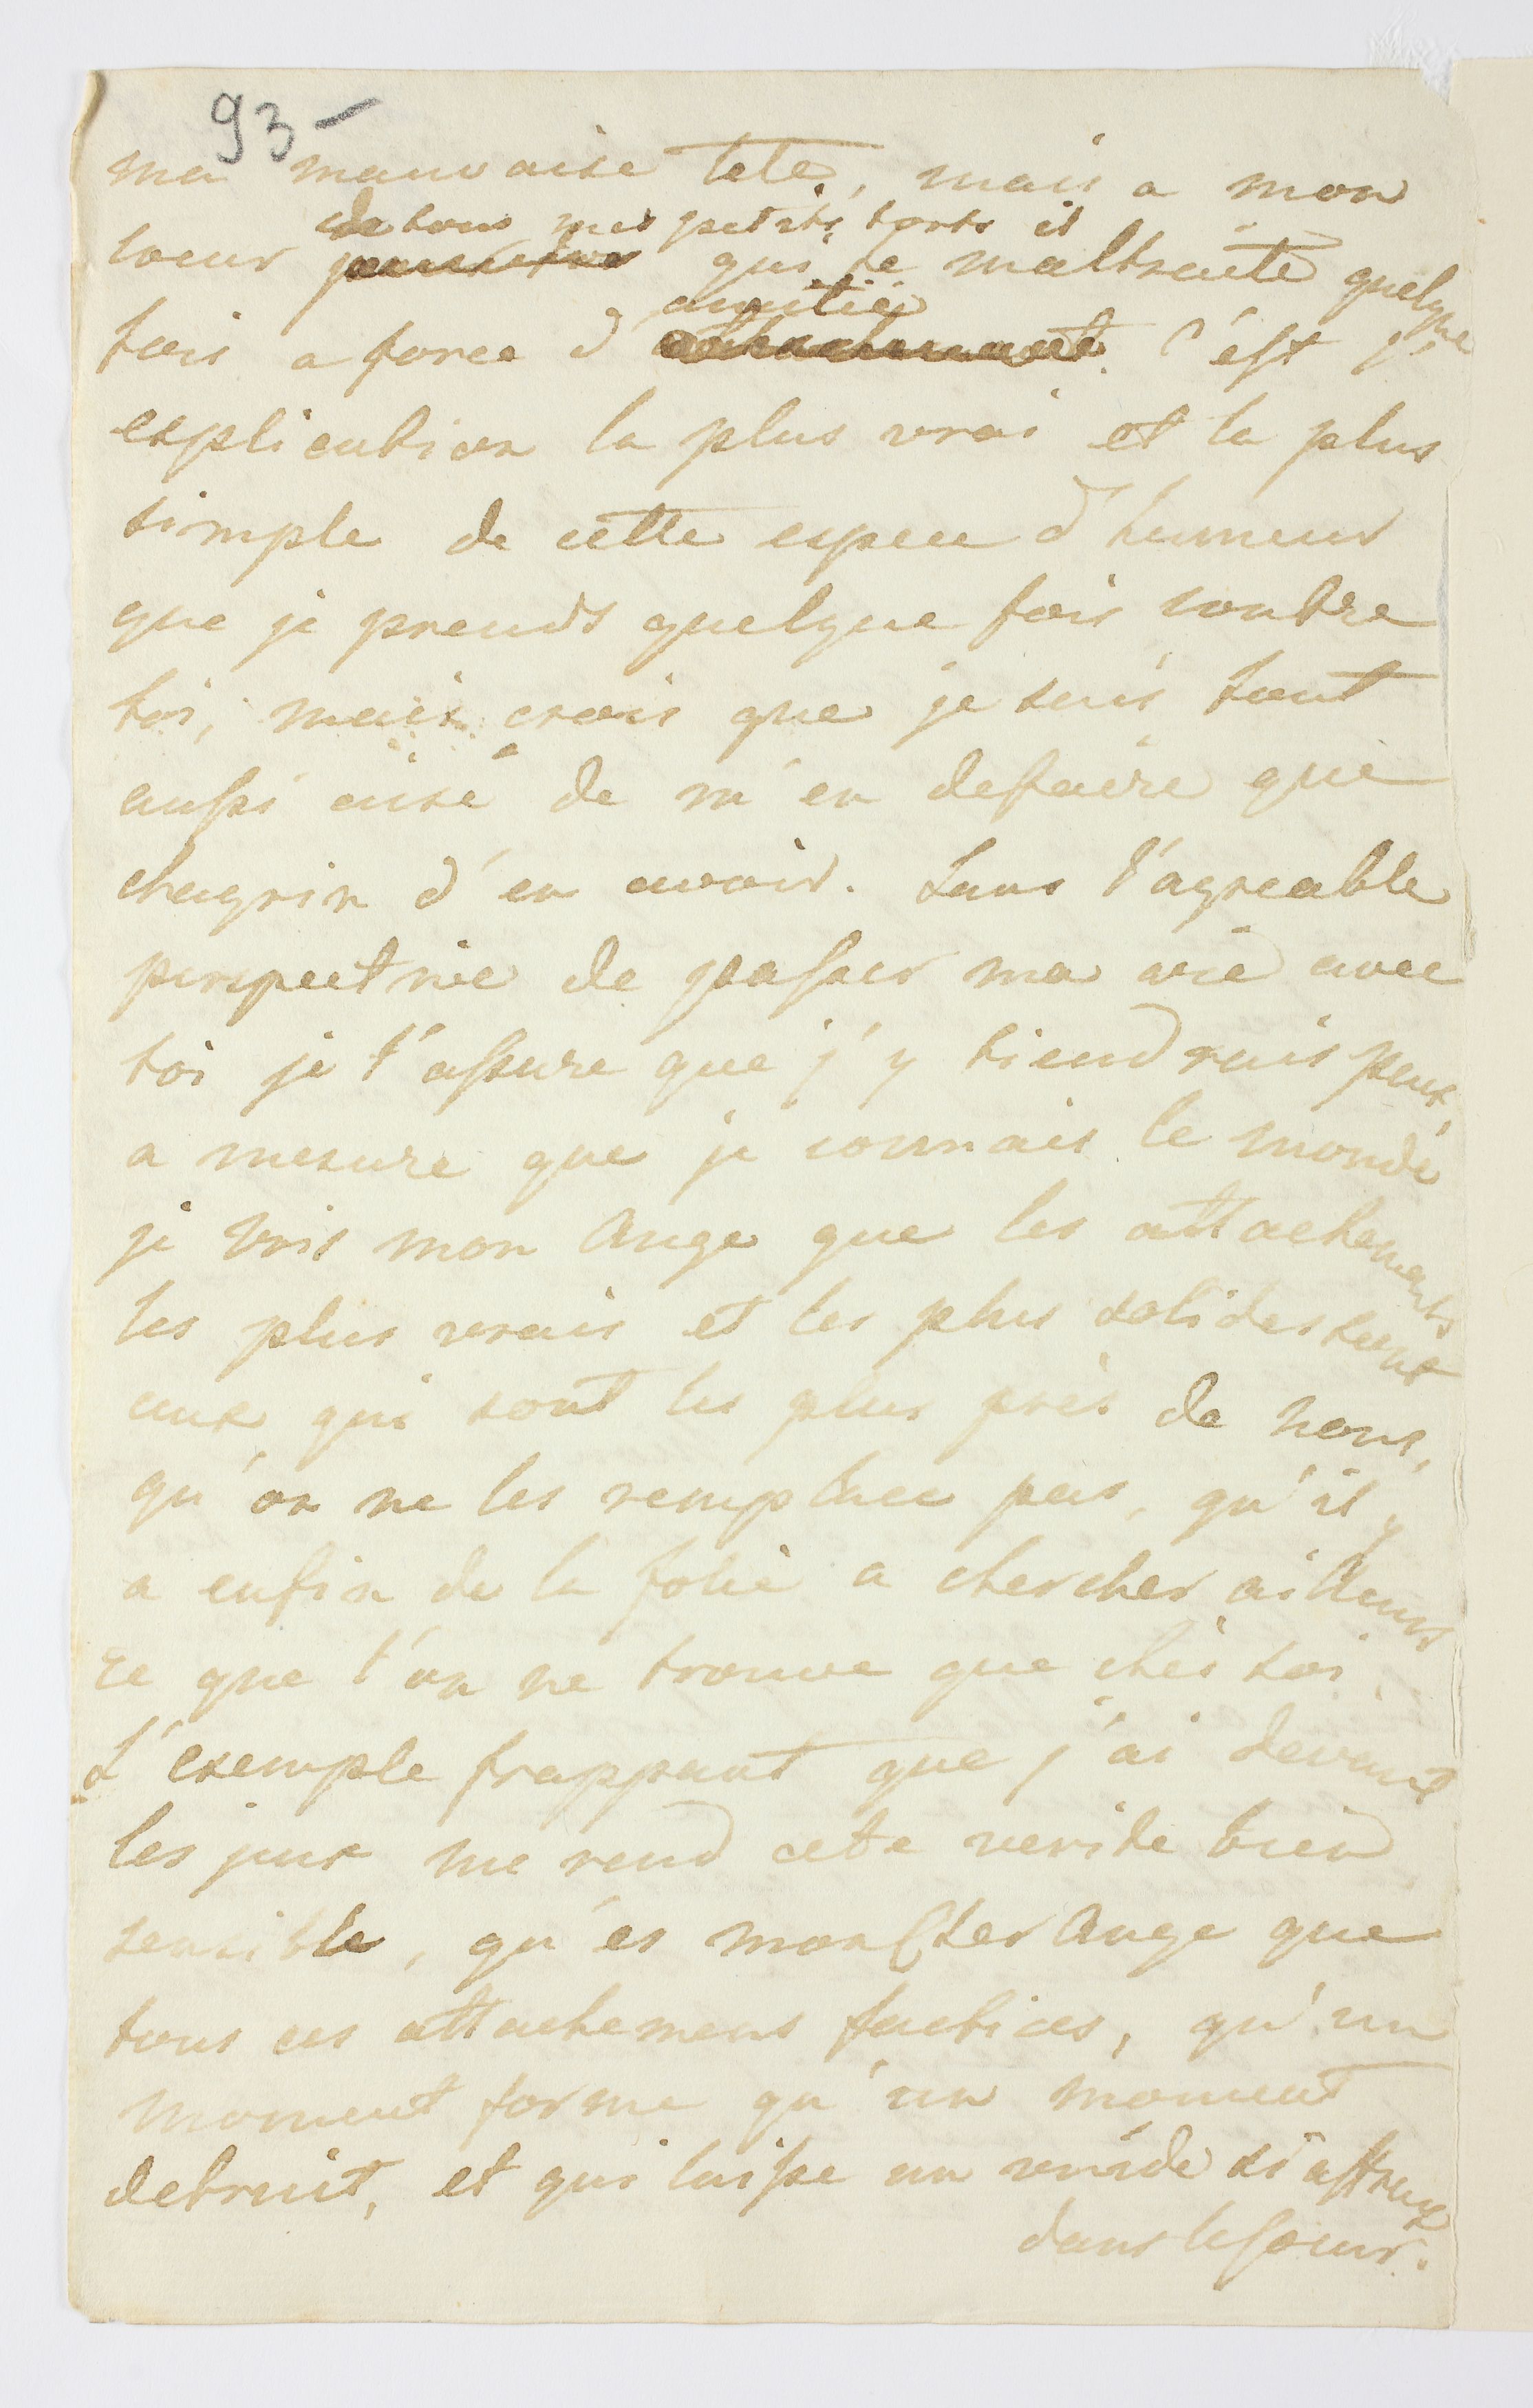 93-
ma mauvaise tete, mais a mon
de tous mes petits torts il
coeur qui te maltraite quelque
amitié
fois a force d' attachement. C'est l'
explication la plus vrai et la plus
simple de cette espece d'humeur
que je prends quelque fois contre
toi, mais crois que je suis tout
aussi aisé de m'en defaire que
chagrin d'en avoir. Sans l'agreable
perspective de passer ma vie avec
toi je t'assure que j'y tiendrais peu,
a mesure que je connais le monde
je vois mon Ange que les attachements
les plus vrais et les plus solides sont
ceux qui sont les plus près de nous,
qu'on ne les remplace pas, qu'il y
a enfin de la folie a chercher ailleurs
ce que l'on ne trouve que chés soi.
L'exemple frappant que j'ai devant
les jeux me rend cete verite bien
sensible, qu'es mon Cher Ange que
tous ces attachemens factices, qu'un
moment forme qu'un moment
detruit, et qui laisse un vuide si affreux
dans le coeur.